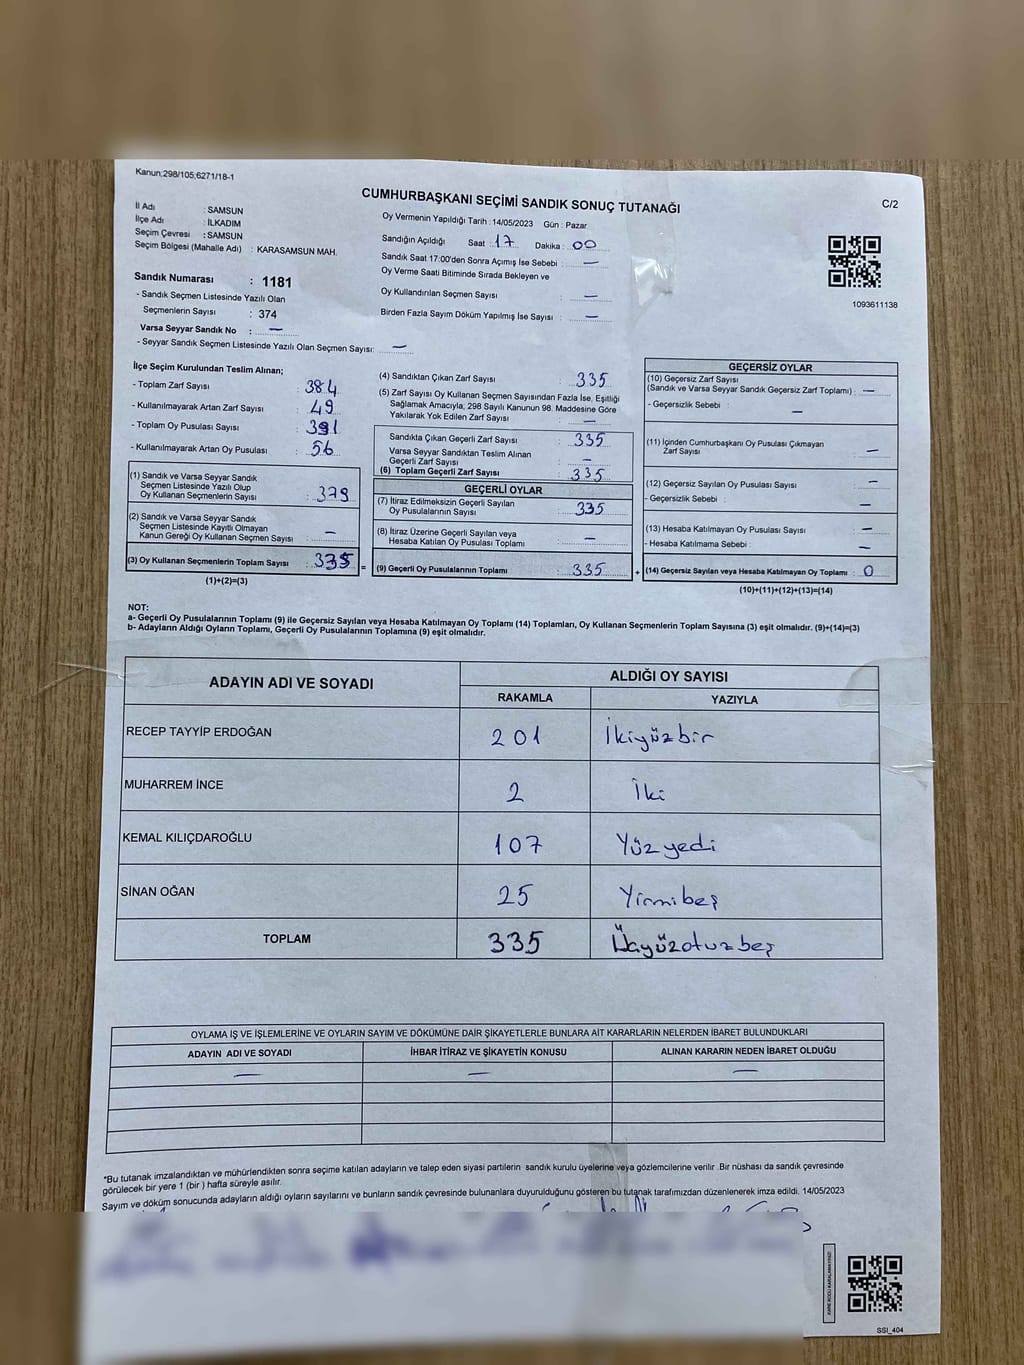 Kanun;298/105;6271/18-1
CUMHURBAŞKANI SEÇİMİ SANDIK SONUÇ TUTANAĞI
C/2
İl Adı : SAMSUN
İlçe Adı : İLKADIM
Seçim Çevresi : SAMSUN
Seçim Bölgesi (Mahalle Adı) : KARASAMSUN MAH.
Oy Vermenin Yapıldığı Tarih : 14/05/2023 Gün : Pazar
Sandığın Açıldığı Saat : 17 Dakika : 00
Sandık Saat 17:00'den Sonra Açımış İse Sebebi : —
Oy Verme Saati Bitiminde Sırada Bekleyen ve
Oy Kullandırılan Seçmen Sayısı : —
Birden Fazla Sayım Döküm Yapılmış İse Sayısı : —
1093611138
Sandık Numarası : 1181
- Sandık Seçmen Listesinde Yazılı Olan
Seçmenlerin Sayısı : 374
Varsa Seyyar Sandık No : —
- Seyyar Sandık Seçmen Listesinde Yazılı Olan Seçmen Sayısı: —
İlçe Seçim Kurulundan Teslim Alınan;
- Toplam Zarf Sayısı : 384
- Kullanılmayarak Artan Zarf Sayısı : 49
- Toplam Oy Pusulası Sayısı : 391
- Kullanılmayarak Artan Oy Pusulası : 56
(1) Sandık ve Varsa Seyyar Sandık
Seçmen Listesinde Yazılı Olup
Oy Kullanan Seçmenlerin Sayısı :
(2) Sandık ve Varsa Seyyar Sandık
Seçmen Listesinde Kayıtlı Olmayan
Kanun Gereği Oy Kullanan Seçmen Sayısı : —
(3) Oy Kullanan Seçmenlerin Toplam Sayısı : 335
(1)+(2)=(3)
(4) Sandıktan Çıkan Zarf Sayısı : 335
(5) Zarf Sayısı Oy Kullanan Seçmen Sayısından Fazla İse, Eşitliği
Sağlamak Amacıyla, 298 Sayılı Kanunun 98. Maddesine Göre
Yakılarak Yok Edilen Zarf Sayısı : —
Sandıkta Çıkan Geçerli Zarf Sayısı : 335
Varsa Seyyar Sandıktan Teslim Alınan
Geçerli Zarf Sayısı : —
(6) Toplam Geçerli Zarf Sayısı : 335
GEÇERLİ OYLAR
(7) İtiraz Edilmeksizin Geçerli Sayılan
Oy Pusulalarının Sayısı : 335
(8) İtiraz Üzerine Geçerli Sayılan veya
Hesaba Katılan Oy Pusulası Toplamı : —
= (9) Geçerli Oy Pusulalarının Toplamı : 335
GEÇERSİZ OYLAR
(10) Geçersiz Zarf Sayısı
(Sandık ve Varsa Seyyar Sandık Geçersiz Zarf Toplamı) : —
- Geçersizlik Sebebi : —
(11) İçinden Cumhurbaşkanı Oy Pusulası Çıkmayan
Zarf Sayısı : —
(12) Geçersiz Sayılan Oy Pusulası Sayısı : —
- Geçersizlik Sebebi : —
(13) Hesaba Katılmayan Oy Pusulası Sayısı : —
- Hesaba Katılmama Sebebi : —
+ (14) Geçersiz Sayılan veya Hesaba Katılmayan Oy Toplamı : 0
(10)+(11)+(12)+(13)=(14)
NOT:
a- Geçerli Oy Pusulalarının Toplamı (9) ile Geçersiz Sayılan veya Hesaba Katılmayan Oy Toplamı (14) Toplamları, Oy Kullanan Seçmenlerin Toplam Sayısına (3) eşit olmalıdır. (9)+(14)=(3)
b- Adayların Aldığı Oyların Toplamı, Geçerli Oy Pusulalarının Toplamına (9) eşit olmalıdır.
ADAYIN ADI VE SOYADI ALDIĞI OY SAYISI
RAKAMLA YAZIYLA
RECEP TAYYİP ERDOĞAN 201 İkiyüzbir
MUHARREM İNCE 2 İki
KEMAL KILIÇDAROĞLU 107 Yüzyedi
SİNAN OĞAN 25 Yirmibeş
TOPLAM 335 Üçyüzotuzbeş
OYLAMA İŞ VE İŞLEMLERİNE VE OYLARIN SAYIM VE DÖKÜMÜNE DAİR ŞİKAYETLERLE BUNLARA AİT KARARLARIN NELERDEN İBARET BULUNDUKLARI
ADAYIN ADI VE SOYADI İHBAR İTİRAZ VE ŞİKAYETİN KONUSU ALINAN KARARIN NEDEN İBARET OLDUĞU
— — —
*Bu tutanak imzalandıktan ve mühürlendikten sonra seçime katılan adayların ve talep eden siyasi partilerin sandık kurulu üyelerine veya gözlemcilerine verilir .Bir nüshası da sandık çevresinde
görülecek bir yere 1 (bir ) hafta süreyle asılır.
Sayım ve döküm sonucunda adayların aldığı oyların sayılarını ve bunların sandık çevresinde bulunanlara duyurulduğunu gösteren bu tutanak tarafımızdan düzenlenerek imza edildi. 14/05/2023
KARE KODU KARALAMAYINIZ!
SSI_404